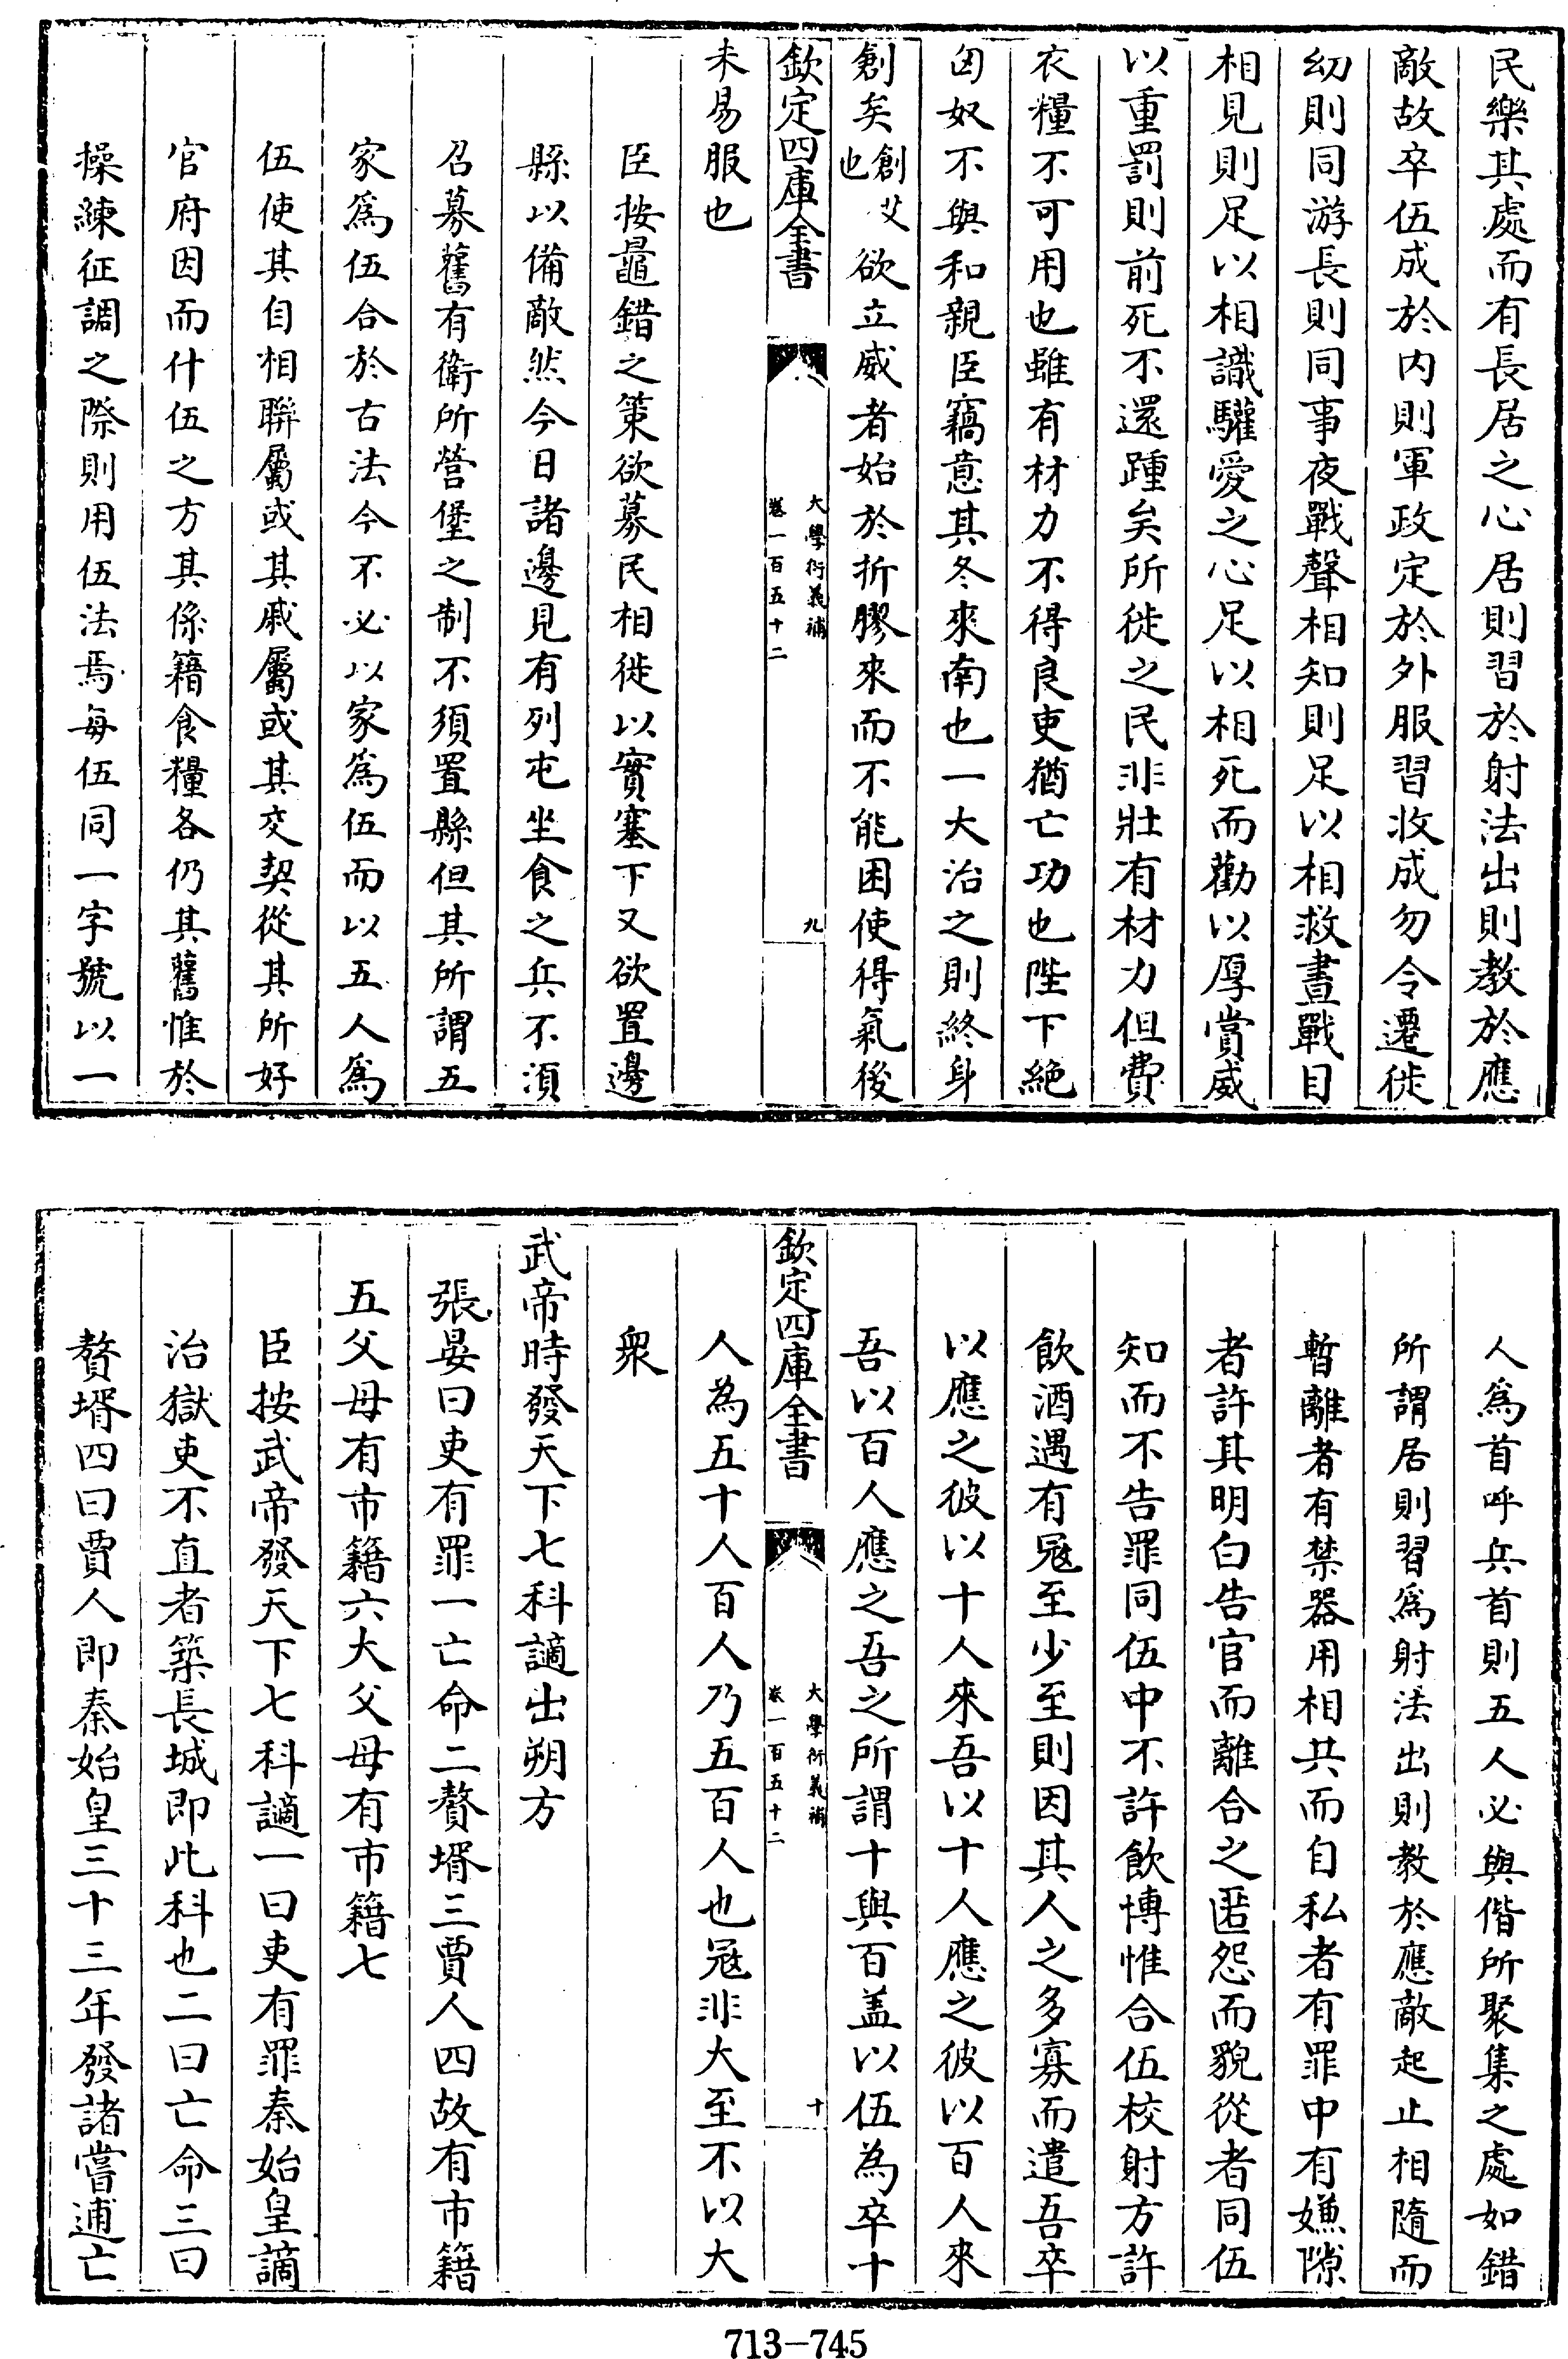 民樂其處而有長居之心居則習於射法出則教於應
敵故卒伍成於内則軍政定於外服習收成勿令遷徙
幼則同游長則同事夜戰聲相知則足以相救晝戰目
相見則足以相識驩愛之心足以相死而勸以厚賞威
以重罰則前死不還踵矣所徙之民非壯有材力但費
衣糧不可用也雖有材力不得良吏猶亡功也陛下絶
匈奴不與和親臣竊意其冬來南也一大治之則終身
創矣創艾也欲立威者始於折膠來而不能困使得氣後
欽定四庫全書
大學衍義補
卷一百五十二
九
未易服也
臣按鼂錯之策欲募民相徙以實塞下又欲置邊
縣以備敵然今日諸邊見有列屯坐食之兵不須
召募舊有衛所營堡之制不須置縣但其所謂五
家爲伍合於古法今不必以家爲伍而以五人爲
伍使其自相聯屬或其戚屬或其交契從其所好
官府因而什伍之方其係籍食糧各仍其舊惟於
操練征調之際則用伍法焉每伍同一字號以一
人爲首呼兵首則五人必與偕所聚集之處如錯
所謂居則習爲射法出則教於應敵起止相隨而
暫離者有禁器用相共而自私者有罪中有嫌隙
者許其明白告官而離合之匿怨而貌從者同伍
知而不告罪同伍中不許飲博惟合伍校射方許
飲酒遇有冦至少至則因其人之多寡而遣吾卒
以應之彼以十人來吾以十人應之彼以百人來
吾以百人應之吾之所謂十與百盖以伍為卒十
欽定四庫全書
大學衍義補
卷一百五十二
十
人為五十人百人乃五百人也冦非大至不以大
衆
武帝時發天下七科謫出朔方
張晏曰吏有罪一亡命二贅壻三賈人四故有市籍
五父母有市籍六大父母有市籍七
臣按武帝發天下七科謫一曰吏有罪秦始皇謫
治獄吏不直者築長城即此科也二曰亡命三曰
贅壻四曰賈人即秦始皇三十三年發諸嘗逋亡
713-745